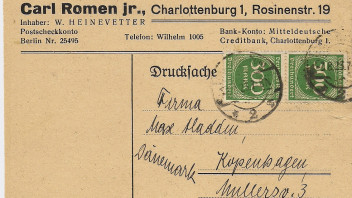 Carl Romen jr., Charlottenburg 1, Rosinenstr. 19
Inhaber: W. HEINEVETTER
Postscheckkonto
Berlin Nr. 25495
Telefon: Wilhelm 1005
Bank-Konto: Mitteldeutsche
Creditbank, Charlottenburg 1.
Drucksache
300
300
Firma
Max Aladdin,
Dänemark
Kopenhagen
Mullersv. 3